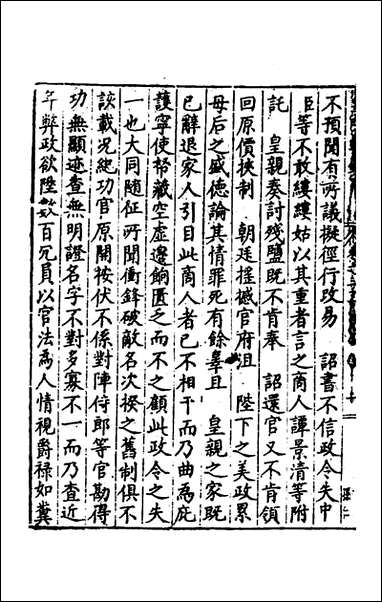 不預聞有所議擬徑行改易　詔書不信政令失中
臣等不敢縷縷姑以其重者言之商人譚景清等附
託　皇親奏討殘鹽既不肯奉　詔還官又不肯領
回原價挾制　朝廷搖撼官府沮　陛下之美政累
母后之盛德論其情罪死有餘辜且　皇親之家既
已辭退家人引目此商人者已不相干而乃曲為庇
護寧使帑藏空虛邊餉匱乏而不之顧此政令之失
一也大同隨征所聞衝鋒破敵名次揆之舊制俱不
該載況總功官原開按伏不係對陣侍郎等官勘得
功無顯迹查無明證名字不對多寡不一而乃查近
年弊政欲陞數百冗員以官法為人情視爵祿如糞